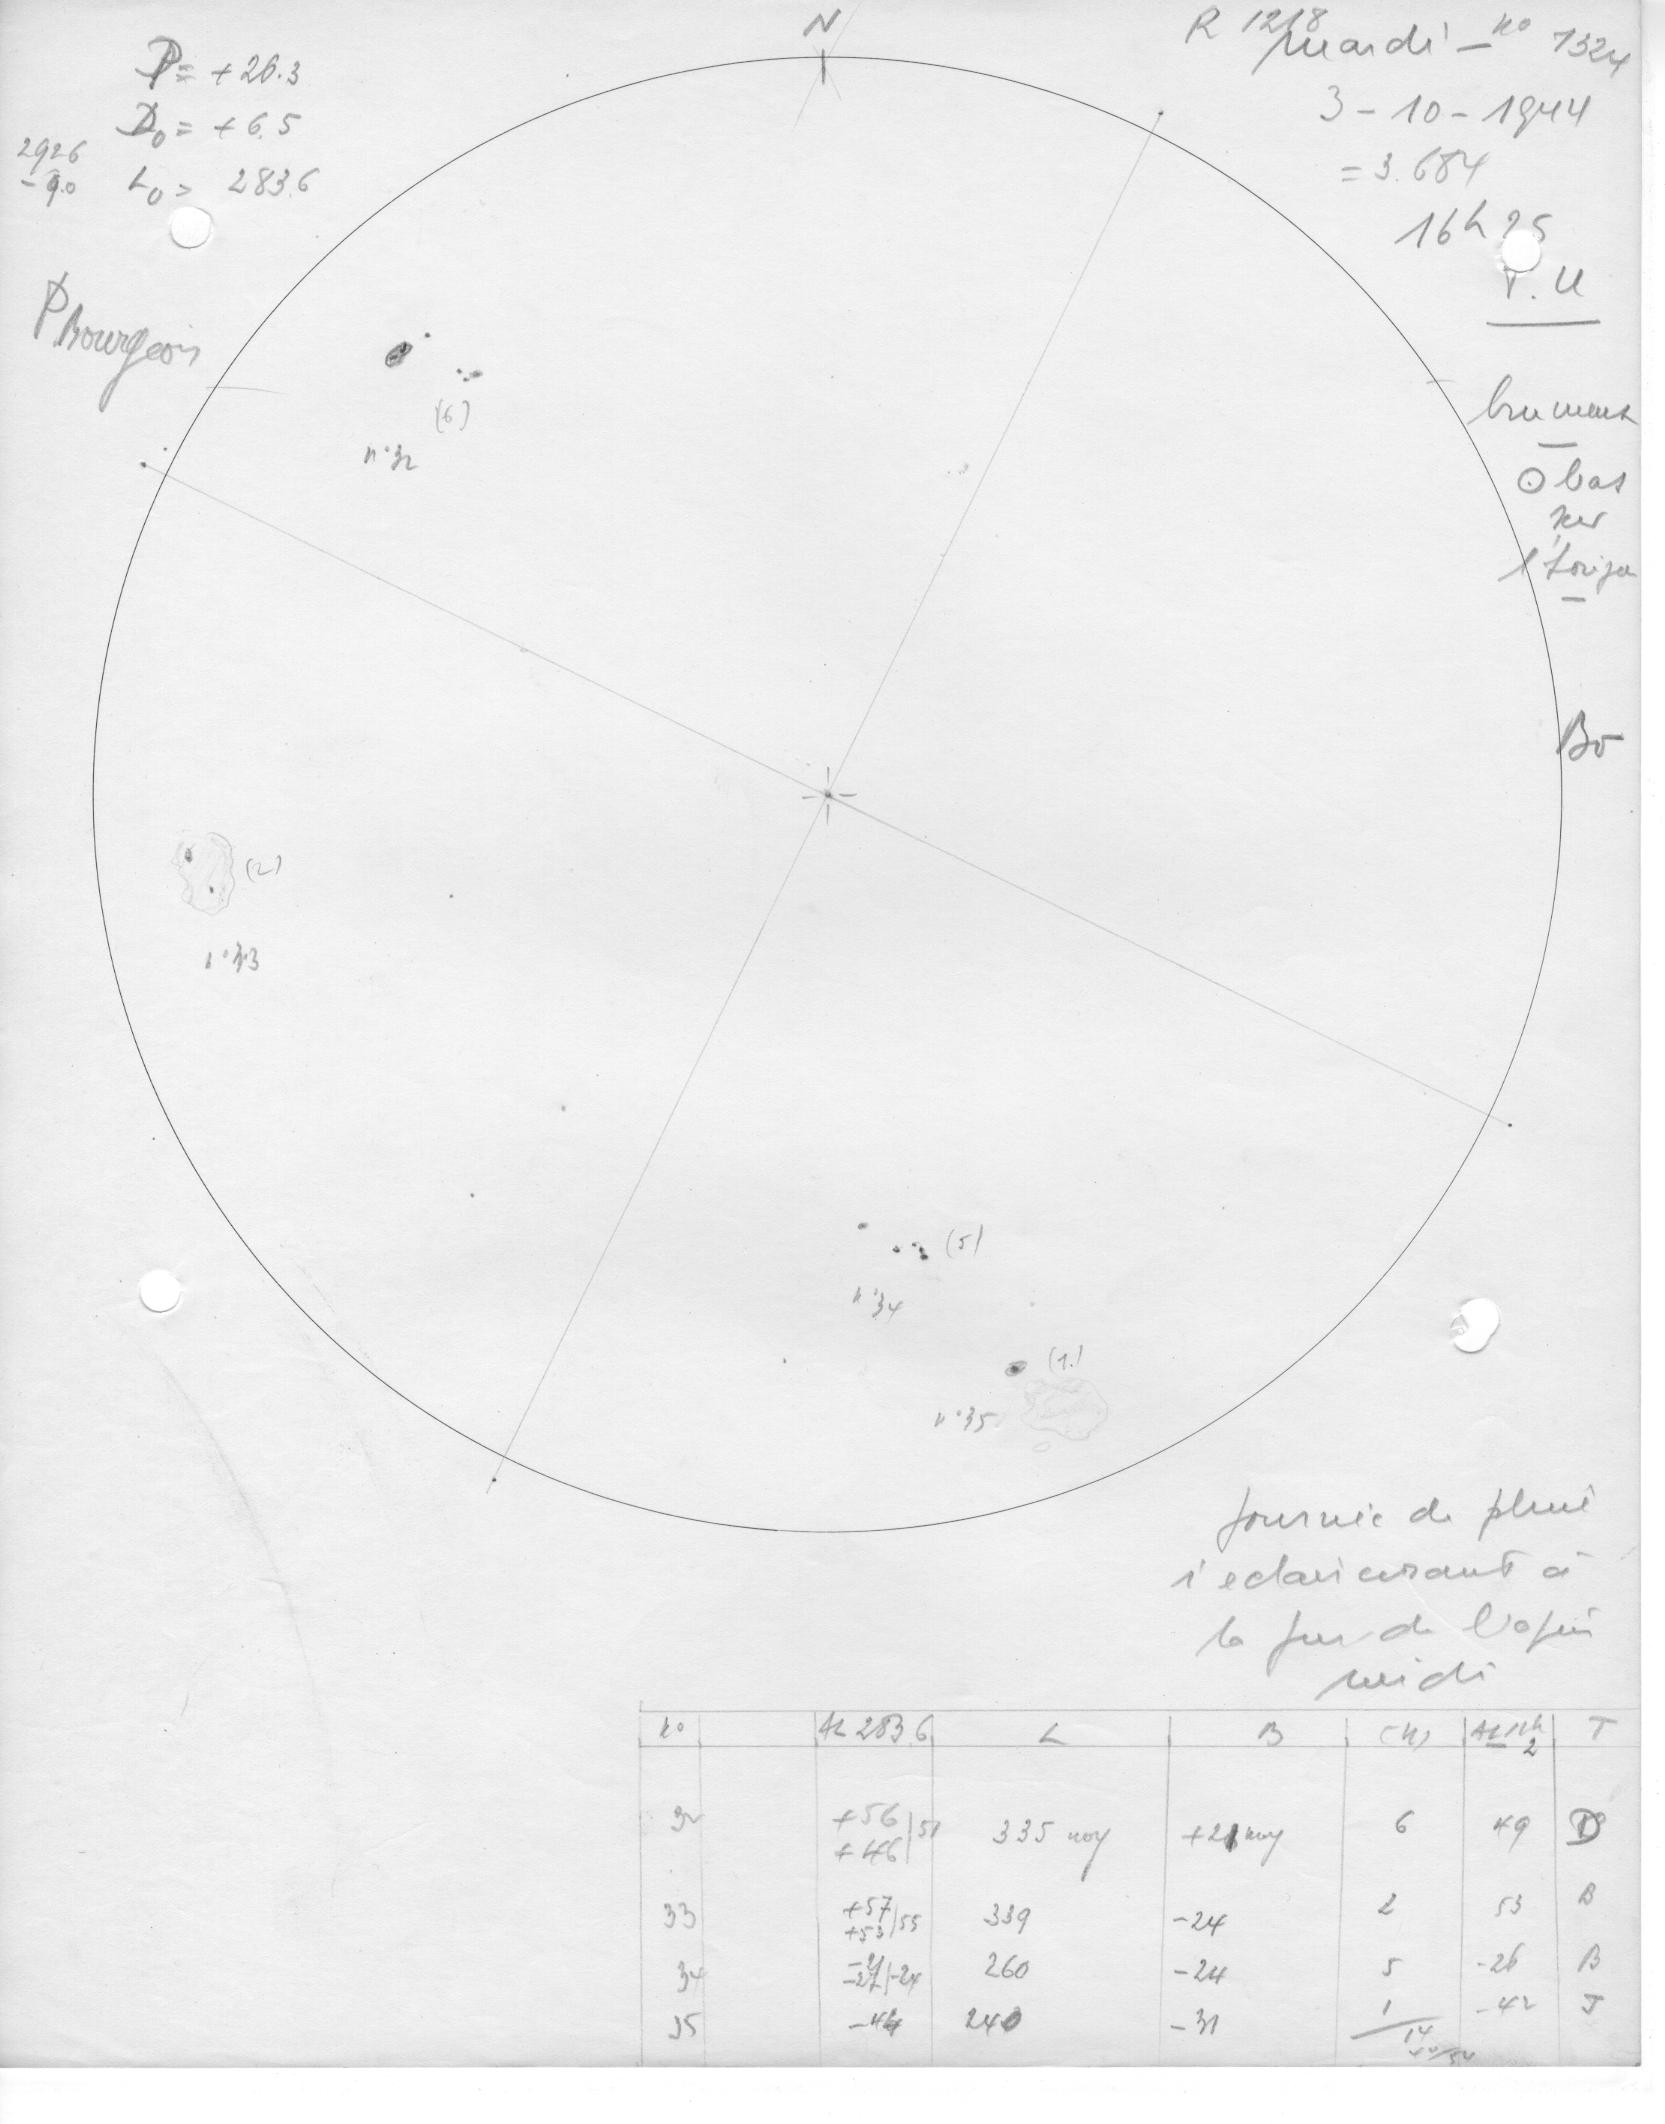 N
R 1218
mardi - no 1324
3-10-1944
= 3.684
16h25
T.U
P = +26.3
D0 = +6.5
L0 = 283.6
292.6
-9.0
P Bourgeois
brumeux
bas
sur
l'horizon
Bo
(6)
n°32
(2)
n°33
(5)
n°34
(1)
n°35
Journée de pluie
s'eclaircissant à
la fin de l'après
midi
no 283.6 L B (N) T
32 +56 +46 | 51 335 moy +21 moy 6 49 D
33 +57 +53 | 55 339 -24 2 53 B
34 -21 -27 | -24 260 -24 5 -26 B
35 -44 240 -31 1 -42 J
14